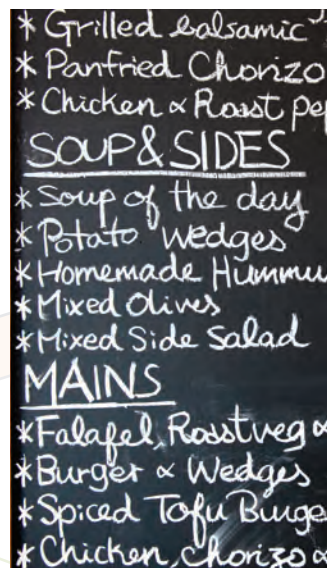 * Grilled balsamic
* Panfried Chorizo
* Chicken & Roast Pe
SOUP & SIDES
* Soup of the day
* Potato Wedges
* Homemade Hummu
* Mixed Olives
* Mixed Side Salad
MAINS
* Falafel, Roastveg &
* Burger & Wedges
* Spiced Tofu Burge
* Chicken, Chorizo &